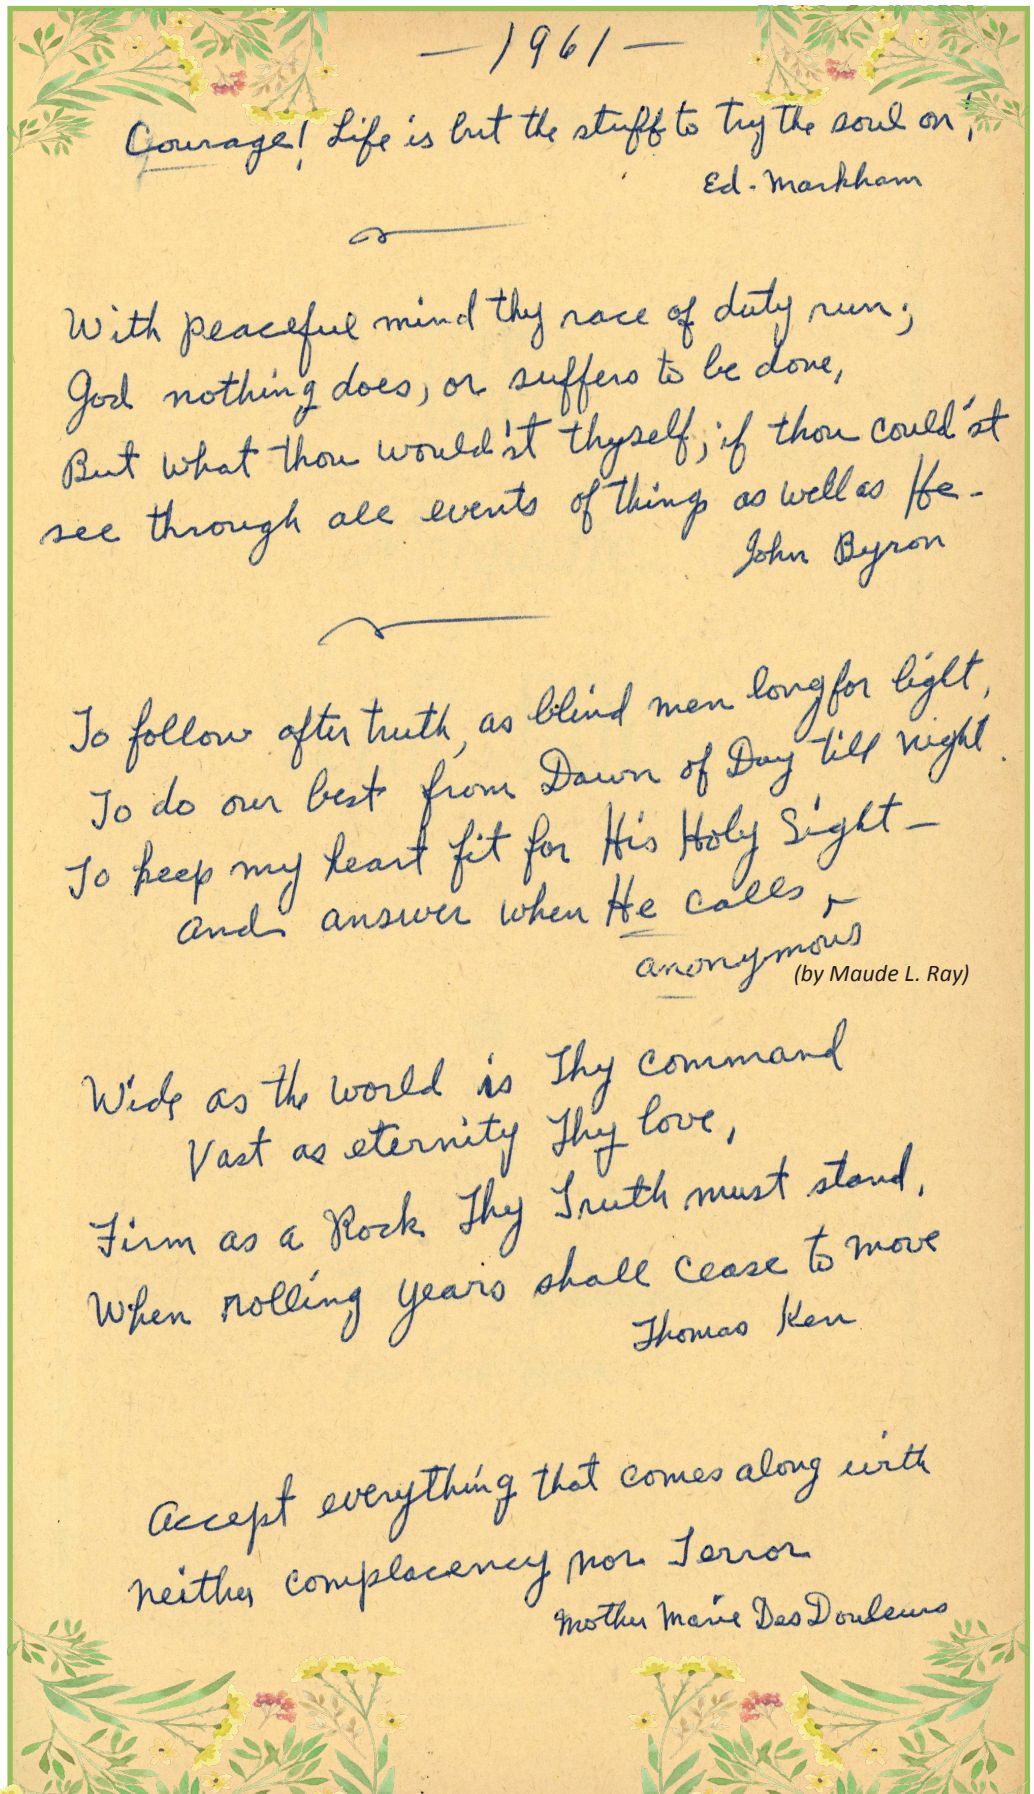 — 1961 —
Courage! Life is but the stuff to try the soul on;
Ed. Markham
With peaceful mind thy race of duty run;
God nothing does, or suffers to be done,
But what thou would'st thyself; if thou could'st
see through all events of things as well as He -
John Byron
To follow after truth, as blind men long for light,
To do our best from Dawn of Day till night.
To keep my heart fit for His Holy Sight —
and answer when He calls -
anonymous
(by Maude L. Ray)
Wide as the world is Thy command
Vast as eternity Thy love,
Firm as a Rock Thy Truth must stand,
When rolling years shall cease to move
Thomas Ken
Accept everything that comes along with
neither complacency nor Terror
Mother Marie Des Douleurs